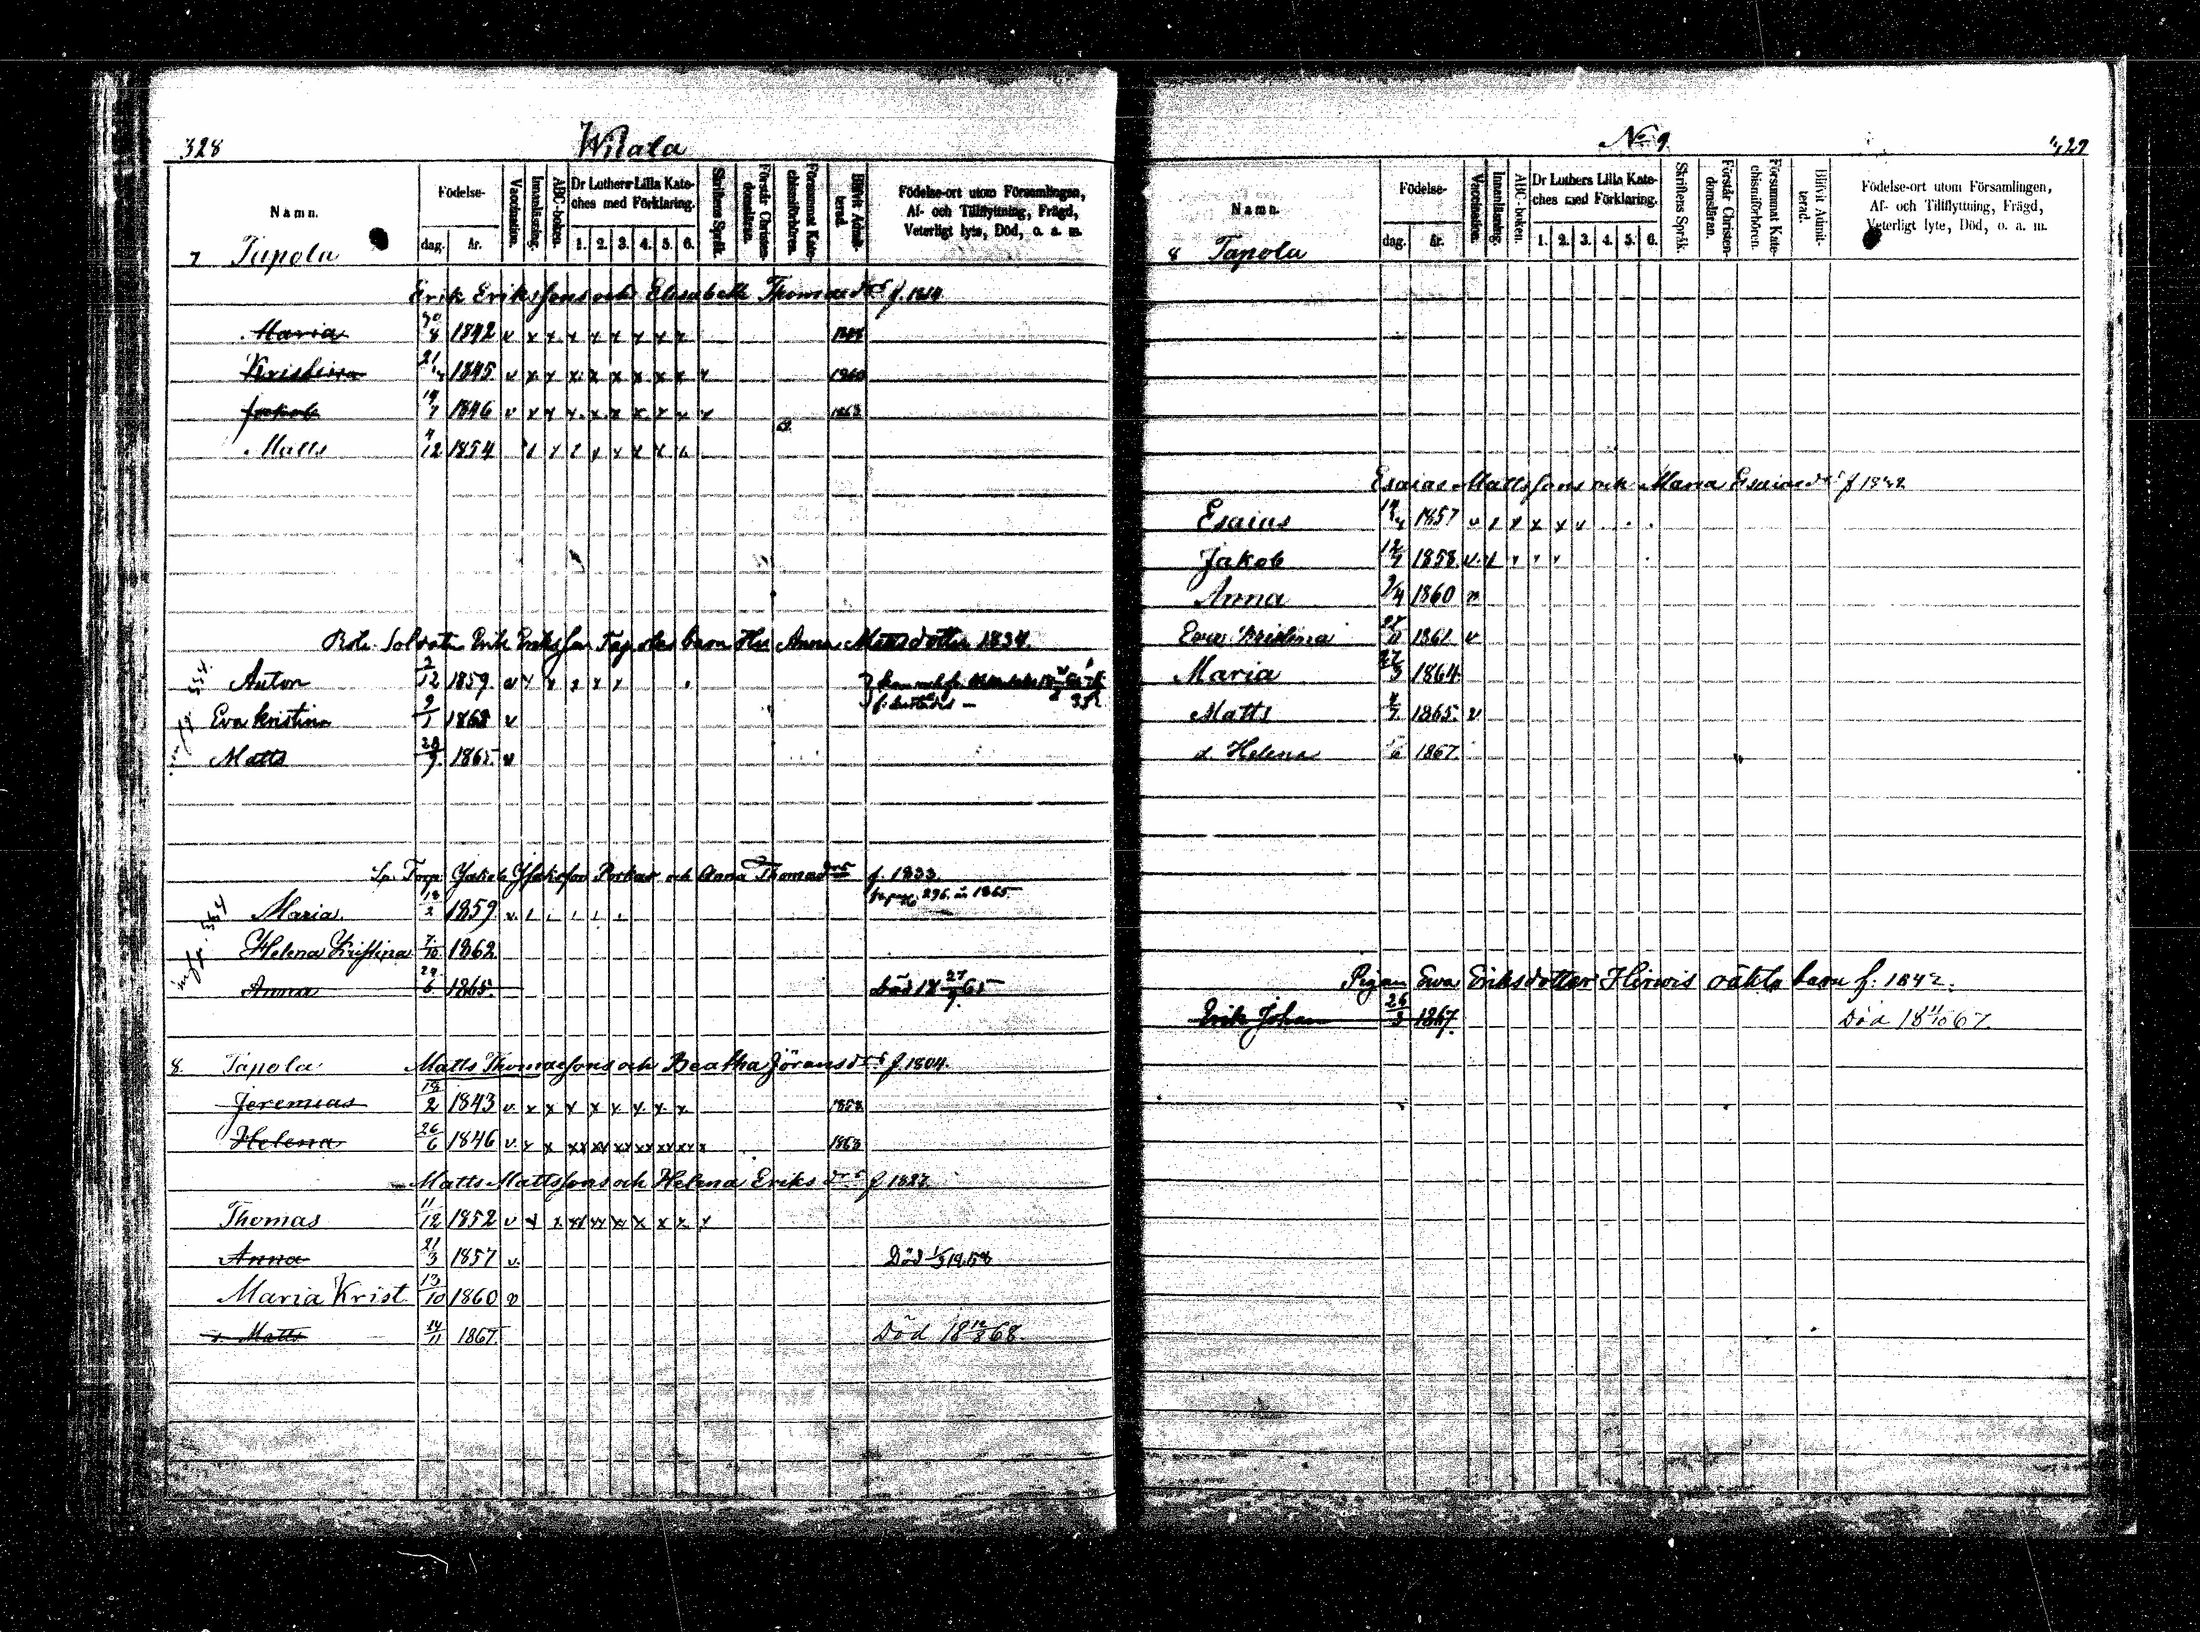 328
Wilala
Namn.
Födelse-
dag.
år.
Vaccination.
Innanläsning.
ABC-boken.
Dr Luthers Lilla Kate-
ches med Förklaring.
1. 2. 3. 4. 5. 6.
Skriftens Språk.
Förstår Christen-
domsläran.
Försummat Kate-
chismiförhören.
Blifvit Admit-
terad.
Födelse-ort utom Församlingen,
Af- och Tillflyttning, Frägd,
Veterligt lyte, Död, o. a. m.
7 Tapola
Erik Erikssons och Elisabeth Thomasdrs f. 1814
Maria 30/8 1842 v x x x x x x x x
Kristina 1845 v x x x x x x x x x 1860
Jakob 1846 v x x x x x x x x x 1863
Matts 12 1854
Soldaten Erik Eriksson Tapolas barn Hu Anna Mattsdotter 1834.
Anton 2/12 1859 v
Eva Kristina 9/1 1863 v
Matts 28/9 1865 v
554
Torp. Jakob Porkas och Anna Thomasdrs f. 1833.
296 1865
Maria. 18/2 1859 v
Helena Kristina 7/10 1862
Anna 29/6 1865. Död 18 27/9 65
554
8. Tapola Matts Thomassons och Beatha Jöransdrs f. 1804.
Jeremias 18/2 1843 v x x x x x x x x 1858
Helena 26/6 1846 v x x xx xx xx xx xx xx x 1863
Matts Mattssons och Helena Eriksdrs f 1827
Thomas 11/12 1852 v x x xx xx xx x x x x
Anna 21/3 1857 v. Död 1/3 1858
Maria Krist. 13/10 1860 v
s. Matts 14/11 1867. Död 18 12/3 68.
No 9.
329
Namn.
Födelse-
dag.
år.
Vaccination.
Innanläsning.
ABC-boken.
Dr Luthers Lilla Kate-
ches med Förklaring.
1. 2. 3. 4. 5. 6.
Skriftens Språk.
Förstår Christen-
domsläran.
Försummat Kate-
chismiförhören.
Blifvit Admit-
terad.
Födelse-ort utom Församlingen,
Af- och Tillflyttning, Frägd,
Veterligt lyte, Död, o. a. m.
8 Tapola
Esaias Mattssons och Maria Esaiaedrs f 1832
Esaias 1857 v x x x x v
Jakob 12/7 1858 v
Anna 2/4 1860 v
Eva Kristina 28/11 1861 v
Maria 27/3 1864
Matts 1865 v
d. Helena 6 1867.
Pigan Ewa Eriksdotter Hirwis oäkta barn f. 1842.
Erik Johan 26/3 1867. Död 18 11/10 67.